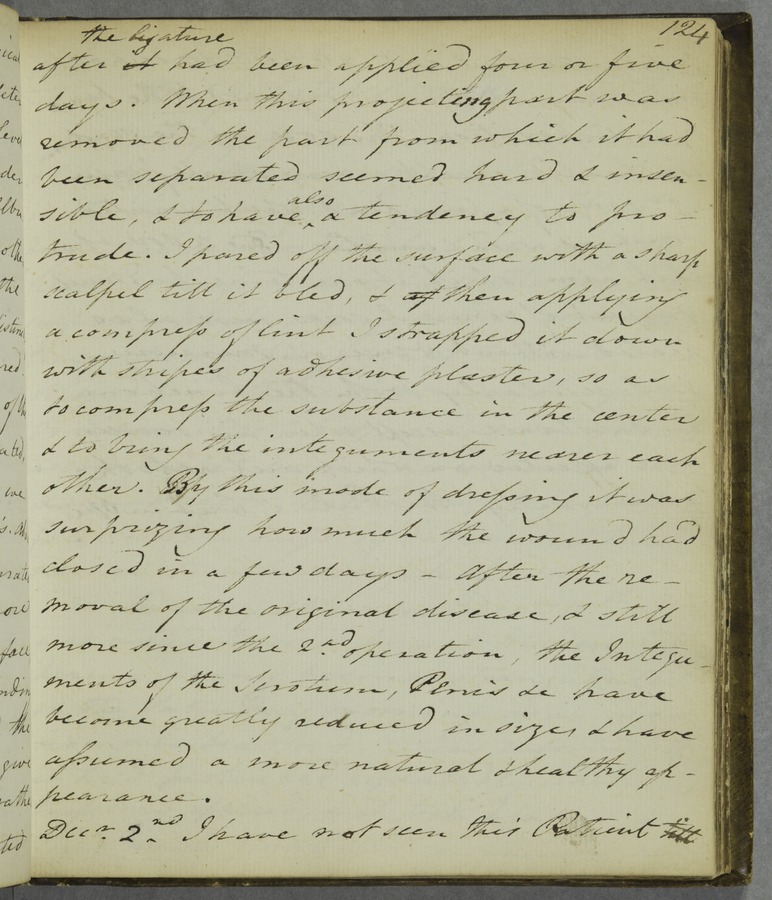 124
the ligature
after it had been applied four or five
days. When this projecting part was
removed the part from which it had
been separated seemed hard & insen-
sible, & to have also a tendency to pro-
trude. I pared off the surface with a sharp
scalpel till it bled, & then applying
a compress of lint I strapped it down
with stripes of adhesive plaster, so as
to compress the substance in the center
& to bring the integuments nearer each
other. By this mode of dressing it was
surprizing how much the wound had
closed in a few days - After the re-
moval of the original disease, & still
more since the 2nd operation, the Integu-
ments of the Scrotum, Penis &c have
become greatly reduced in size, & have
assumed a more natural & healthy ap-
pearance.
Decr. 2nd I have not seen this Patient till